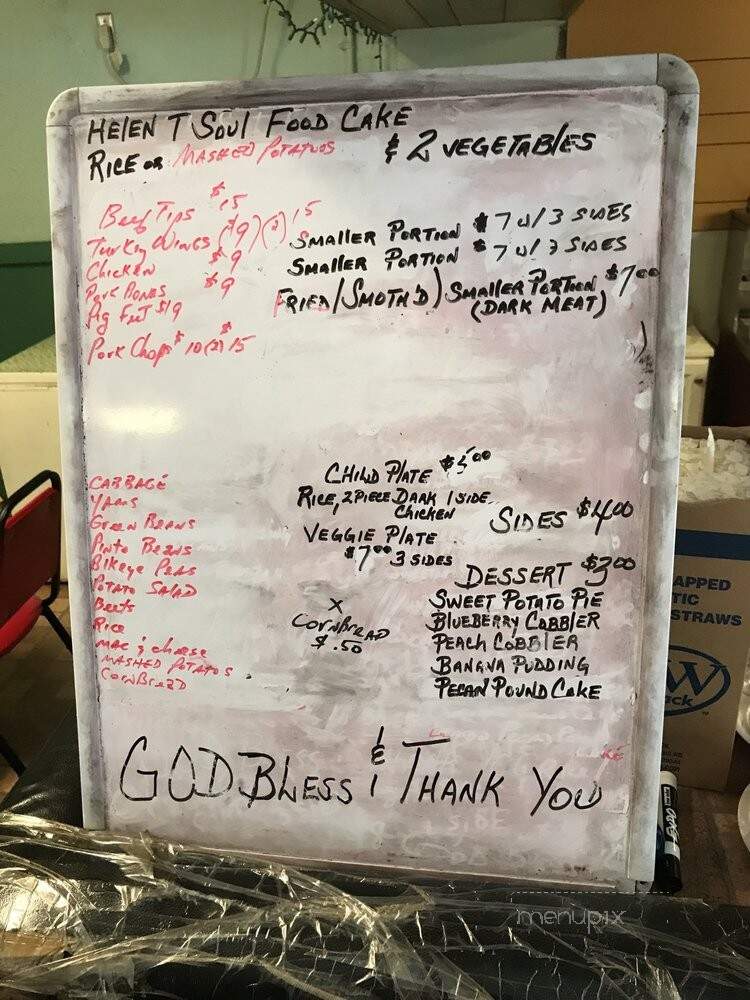 HELEN T SOUL FOOD CAKE
RICE OR MASHED POTATOS & 2 VEGETABLES
Beef Tips $15
Turkey Wings ($9)(2) 15 SMALLER PORTION $7 w/ 3 SIDES
Chicken $9 SMALLER PORTION $7 w/ 3 SIDES
Pork Bones $9 FRIED/(SMOTH'D) SMALLER PORTION $7.00
Pig Feet $19 (DARK MEAT)
Pork Chops $10 (2) $15
CABBAGE
YAMS
GREEN BEANS
Pinto Beans
Blkeye Peas
POTATO SALAD
Beets
Rice
MAC & cheese
MASHED POTATOS
CORNBREAD
CHILD PLATE $5.00
RICE, 2 PIECE DARK 1 SIDE
CHICKEN
VEGGIE PLATE
$7.00 3 SIDES
X
CORNBREAD
$.50
SIDES $4.00
DESSERT $3.00
SWEET POTATO PIE
BLUEBERRY COBBLER
PEACH COBBLER
BANANA PUDDING
PECAN POUND CAKE
GOD BLESS & THANK YOU
APPED
TIC
STRAWS
W
ck
EXPO
menupix